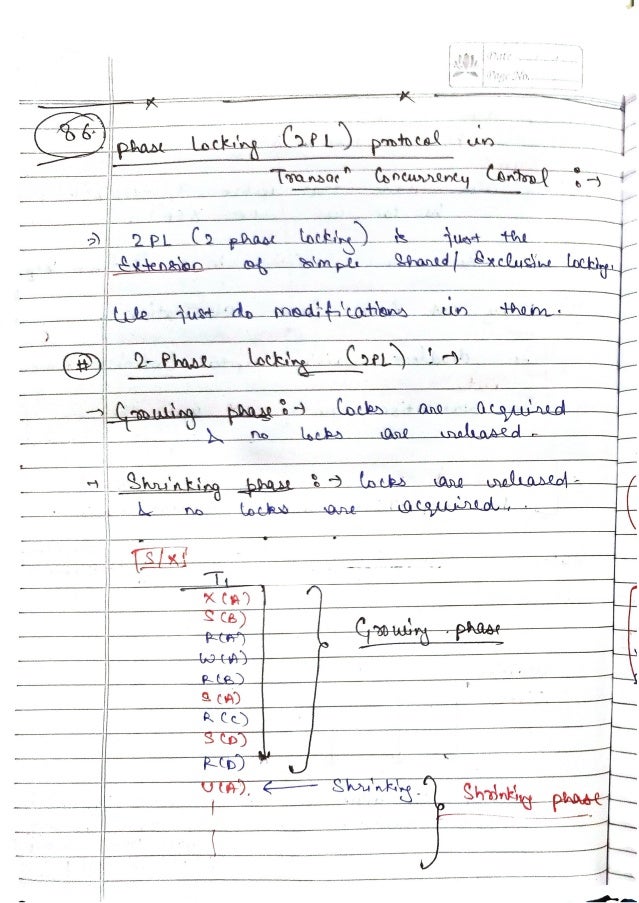 Date
Page No.
86.
phase Locking (2PL) protocol in
Transacⁿ Concurrency Control :→
⇒ 2PL (2 phase locking) is just the
Extension of simple Shared/Exclusive locking.
We just do modifications in them.
# 2-Phase locking (2PL) :→
→ Growing phase :→ locks are acquired
& no locks are released.
→ Shrinking phase :→ locks are released
& no locks are acquired.
S/X
T1
X(A)
S(B)
R(A)
W(A)
R(B)
S(A)
R(C)
S(D)
R(D)
Growing phase
U(A). ← Shrinking.
Shrinking phase